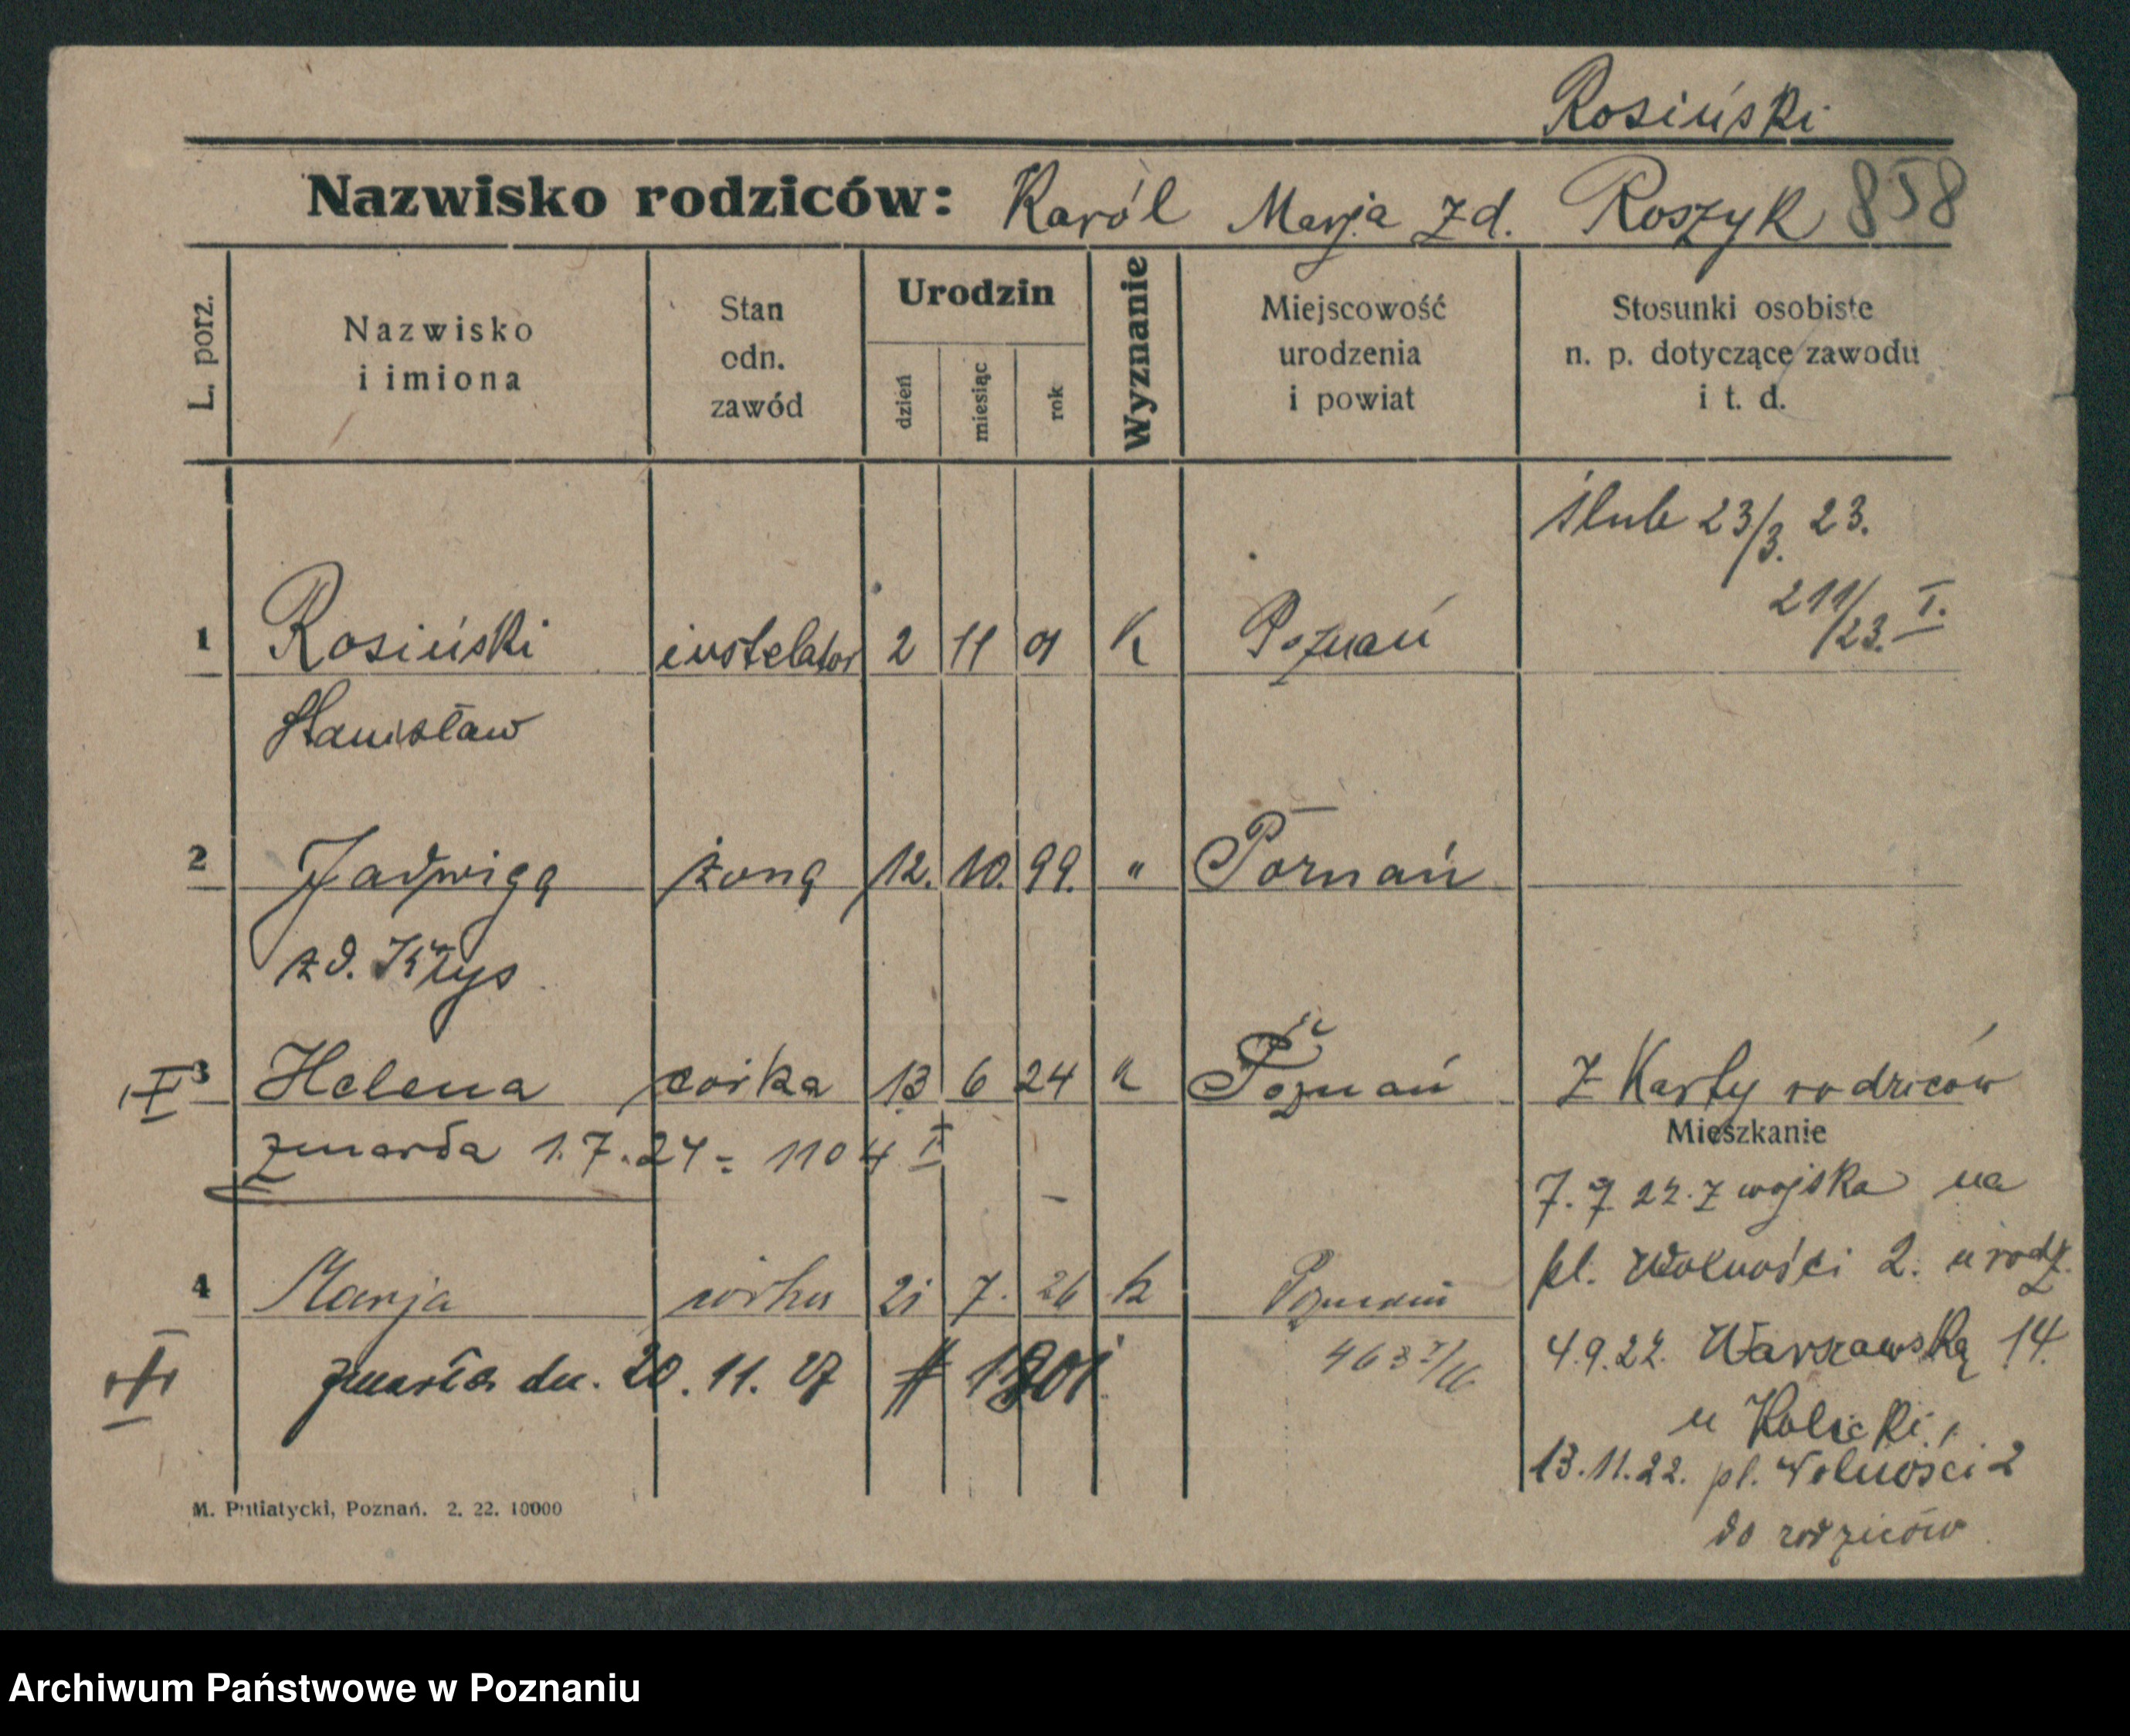 Rosiński
Nazwisko rodziców: Karól Marja zd. Roszyk 858
L. porz.
Nazwisko
i imiona
Stan
odn.
zawód
Urodzin
dzień
miesiąc
rok
Wyznanie
Miejscowość
urodzenia
i powiat
Stosunki osobiste
n. p. dotyczące zawodu
i t. d.
ślub 23/3. 23.
211/23. I.
1 Rosiński instelator 2 11 01 K Poznań
Stanisław
2 Jadwiga żona 12. 10. 99. " Poznań
zd. Krys
3 Helena córka 13 6 24 k Poznań Z Karty rodziców
zmarła 1.7.24 = 1104 I
Mieszkanie
7. 7 22. z wojska na
pl. Wolności 2. urodz.
4 Marja córka 21 7. 26 k Poznań
4.9.22. Warszawska 14.
zmarła dn. 20.11.27 # 1901
463 I/26
u Kolicki,
13.11.22. pl. Wolności 2
do rodziców
M. Putiatycki, Poznań. 2. 22. 10000
Archiwum Państwowe w Poznaniu